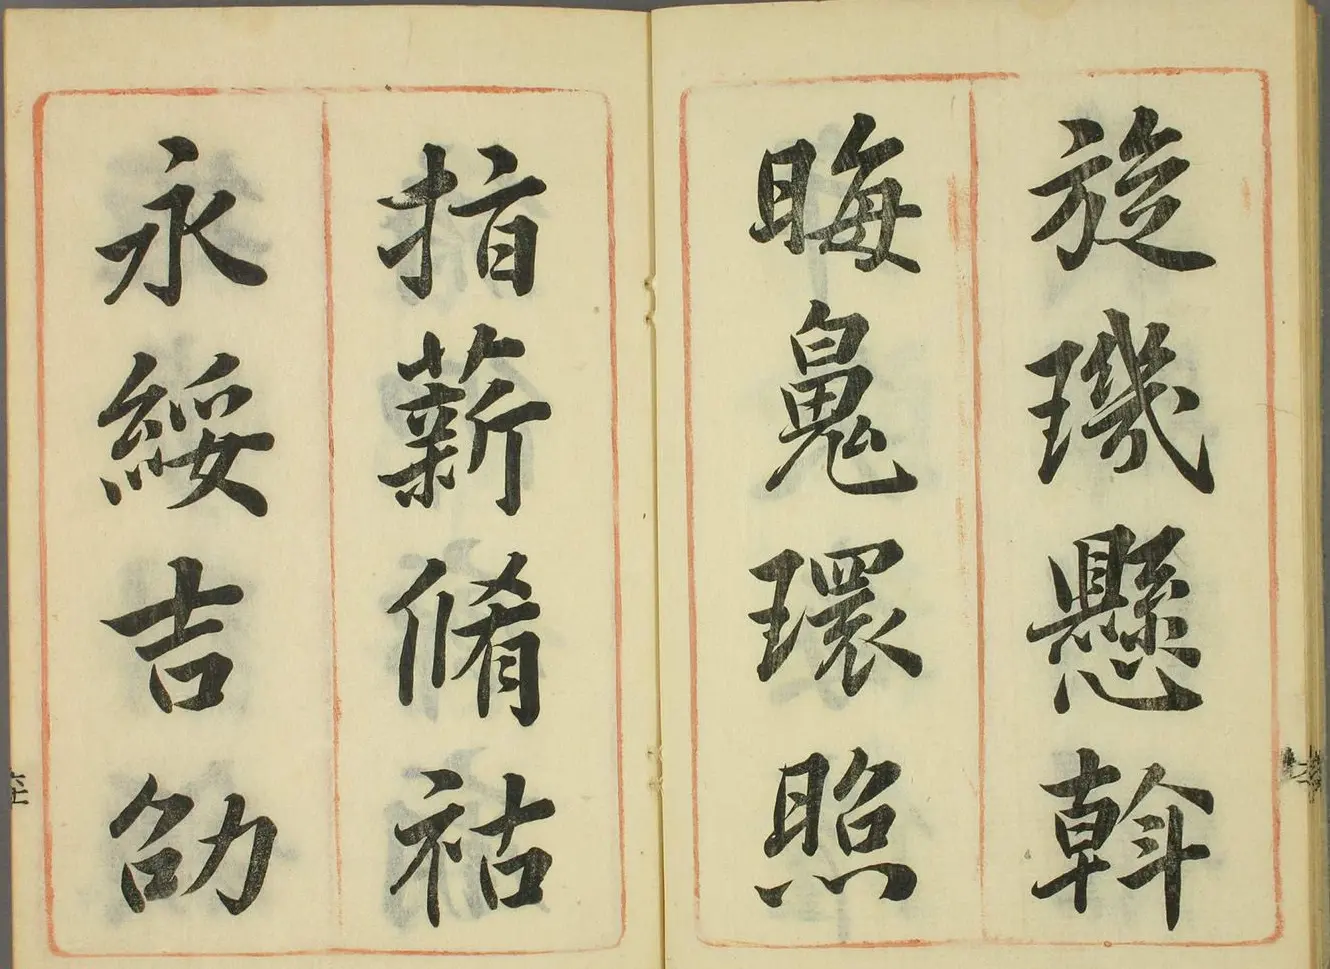 旋璣懸斡
晦魄環照
指薪脩祜
永綏吉劭